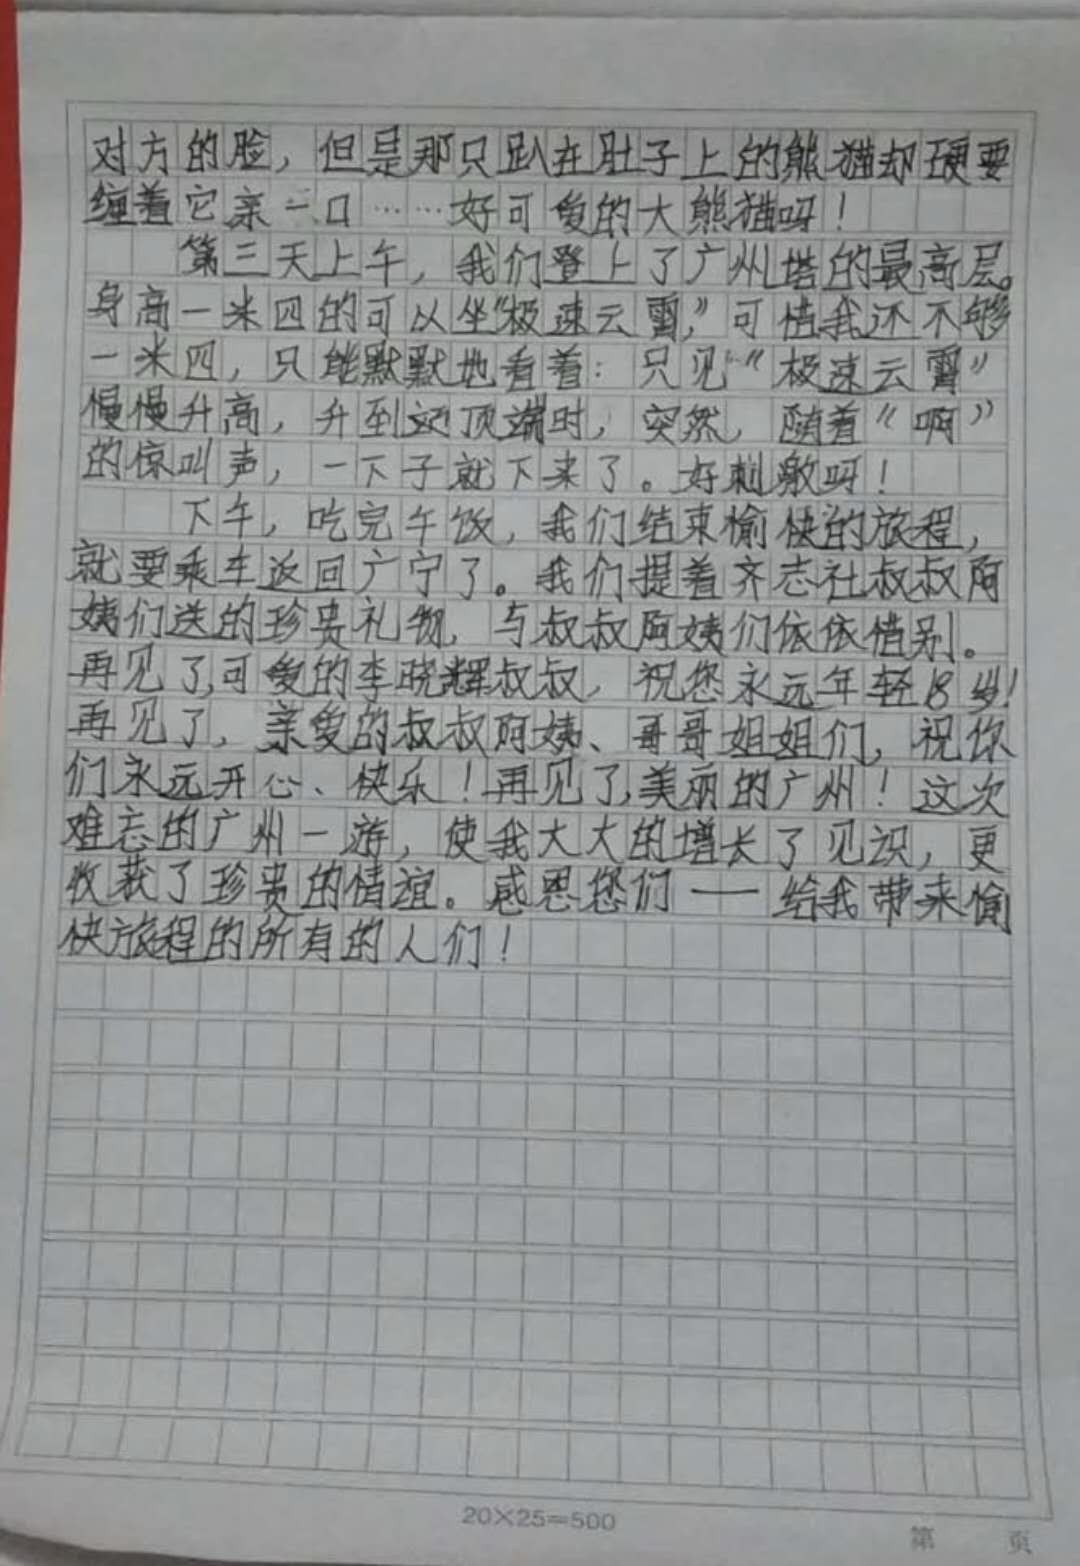 对方的脸，但是那只趴在肚子上的熊猫却硬要
缠着它亲一口……好可爱的大熊猫呀！
第三天上午，我们登上了广州塔的最高层。
身高一米四的可以坐“极速云霄，”可惜我还不够
一米四，只能默默地看着：只见“极速云霄”
慢慢升高，升到这顶端时，突然，随着“啊”
的惊叫声，一下子就下来了。好刺激呀！
下午，吃完午饭，我们结束愉快的旅程，
就要乘车返回广宁了。我们提着齐志社叔叔阿
姨们送的珍贵礼物，与叔叔阿姨们依依惜别。
再见了，可爱的李晓辉叔叔，祝您永远年轻18岁！
再见了，亲爱的叔叔阿姨、哥哥姐姐们，祝你
们永远开心、快乐！再见了，美丽的广州！这次
难忘的广州一游，使我大大的增长了见识，更
收获了珍贵的情谊。感恩您们——给我带来愉
快旅程的所有的人们！
20×25=500
第 页